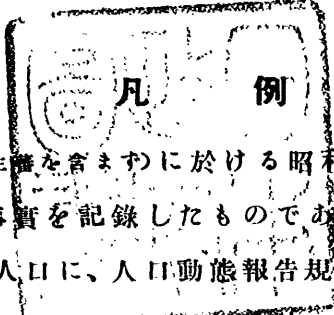 凡 例
生蕃を含まず)に於ける昭和
事實を記錄したものであ
人口に、人口動態報告規